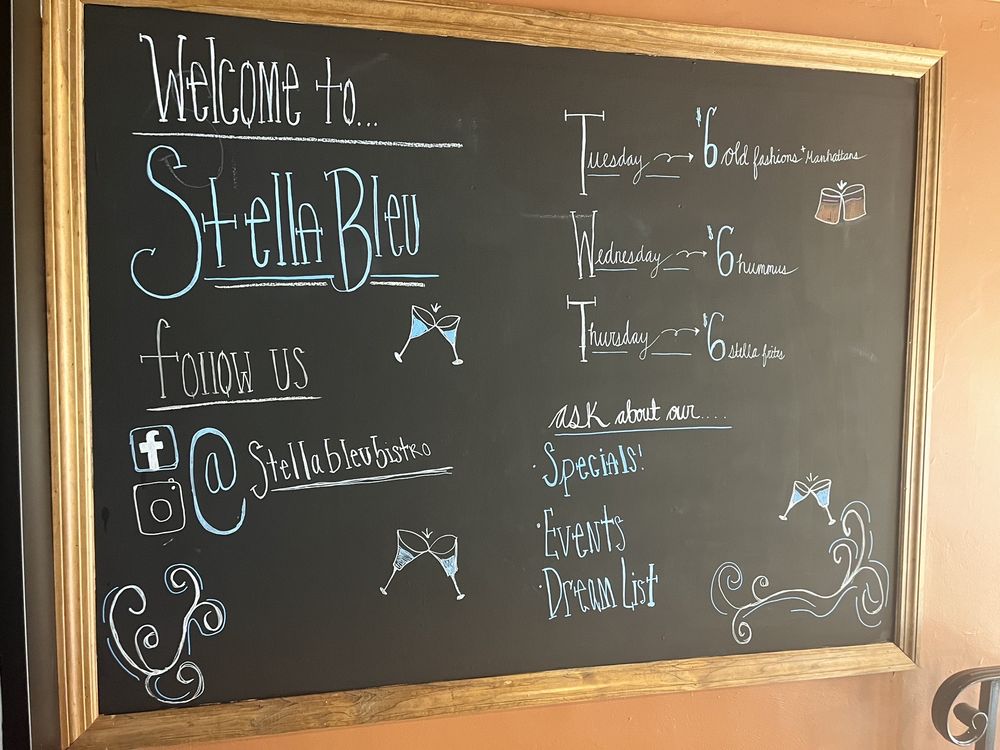 Welcome to...
Stella Bleu
follow us
f
@stellableubistro
Tuesday → $6 old fashions + Manhattans
Wednesday → $6 hummus
Thursday → $6 stella frites
ask about our....
· Specials!
· Events
· Dream List